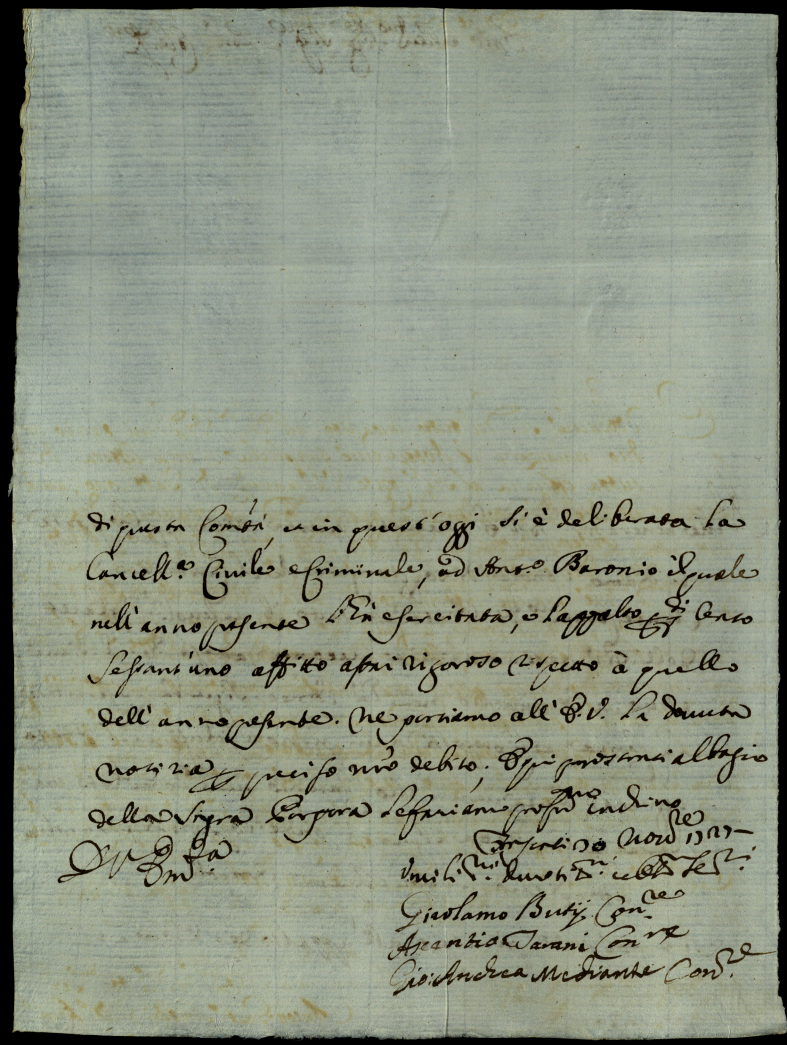 di questa Com.tà, et in quest'oggi si è deliberata la
Cancell.a Civile e Criminale, ad Ant.o Baronio il quale
nell'anno presente l'hà esercitata, e l'appalto di Cento
sessant'uno affitto assai rigoroso rispetto à quello
dell'anno presente. Ne portiamo all'E.V. la dovuta
notizia per preciso nro debito; E qui prostrati al bagio
della Sagra Porpora le facciamo profm.o Inchino
D V Em.za
30 Nov.re 1727
Umilis.mi Devotis.mi et Obb.mi Se.ri
Girolamo Butij Con.re
Ascentio Tarani Con.re
Gio: Andrea Mediante Con.re